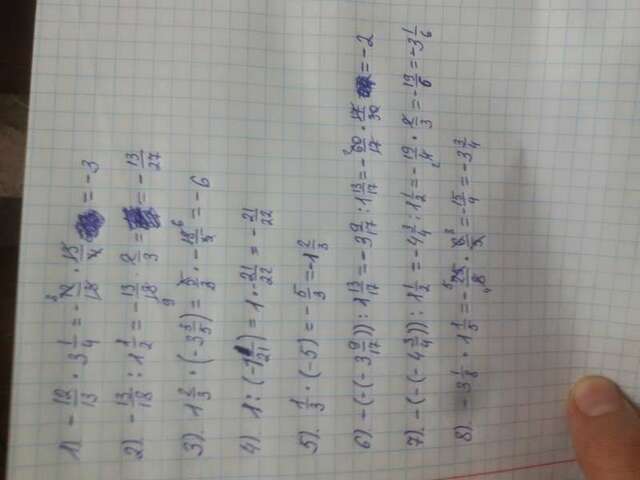 1) - 12/13 · 3 1/4 = - 12/13 · 13/4 = -3
2) - 13/18 : 1 1/2 = - 13/18 · 2/3 = - 13/27
3) 1 2/3 · (-3 3/5) = 5/3 · - 18/5 = -6
4) 1 : (-1 1/21) = 1 · - 21/22 = - 21/22
5) 1/3 · (-5) = - 5/3 = -1 2/3
6) -(-(-3 9/17)) : 1 13/17 = -3 9/17 : 1 13/17 = - 60/17 · 17/30 = -2
7) -(-(-4 3/4)) : 1 1/2 = -4 3/4 : 1 1/2 = - 19/4 · 2/3 = - 19/6 = -3 1/6
8) -3 1/8 · 1 1/5 = - 25/8 · 6/5 = - 15/4 = -3 3/4